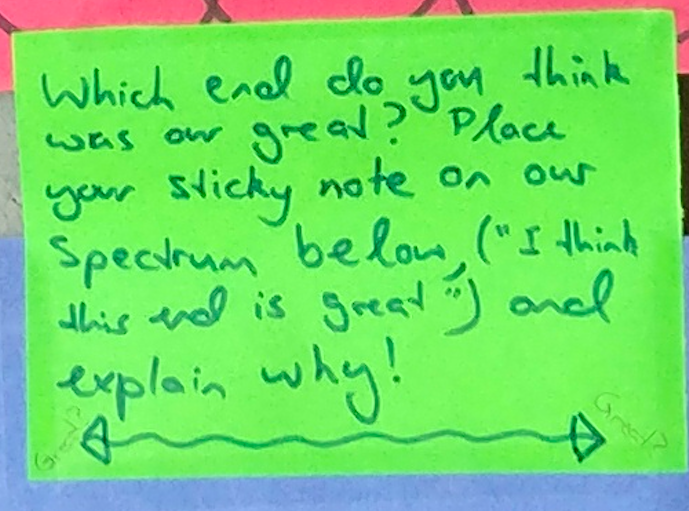 Which end do you think
was our great? Place
your sticky note on our
Spectrum below, ("I think
this end is great") and
explain why!
Great?
Great?